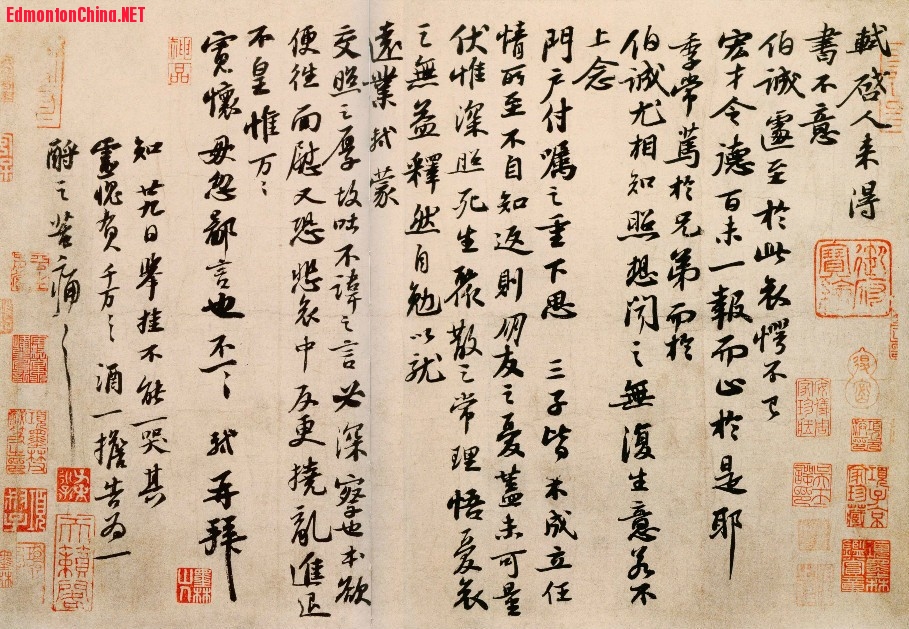 EdmontonChina.NET
軾啓人来得
書不意
伯誠遽至於此哀愕不已
宏才令德百未一報而止於是耶
季常篤於兄弟而於
伯誠尤相知照想聞之無復生意若不
上念
門戶付囑之重下思三子皆未成立任
情所至不自知返則朋友之憂蓋未可量
伏惟深照死生聚散之常理悟憂哀
之無益釋然自勉以就
遠業軾蒙
交照之厚故吐不諱之言必深察也本欲
便往面慰又恐悲哀中反更撓亂進退
不皇惟万〻
寬懷毋忽鄙言也不一〻軾再拜
知廿九日舉挂不能一哭其
靈愧負千万〻酒一擔告為一
酹之苦痛〻
御府寶繪
項子京家珍藏
神品
墨林山人
天籟閣